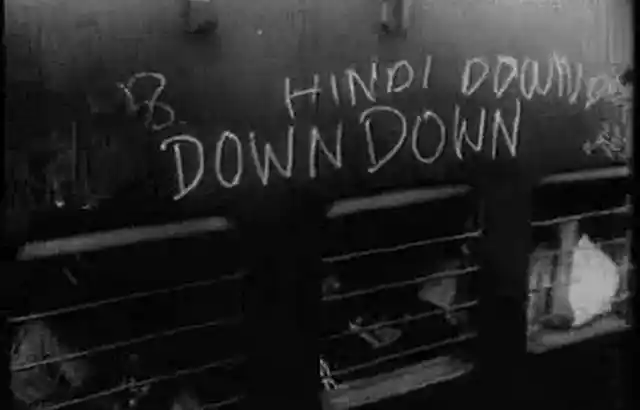 HINDI DDOWN
DOWN DOWN